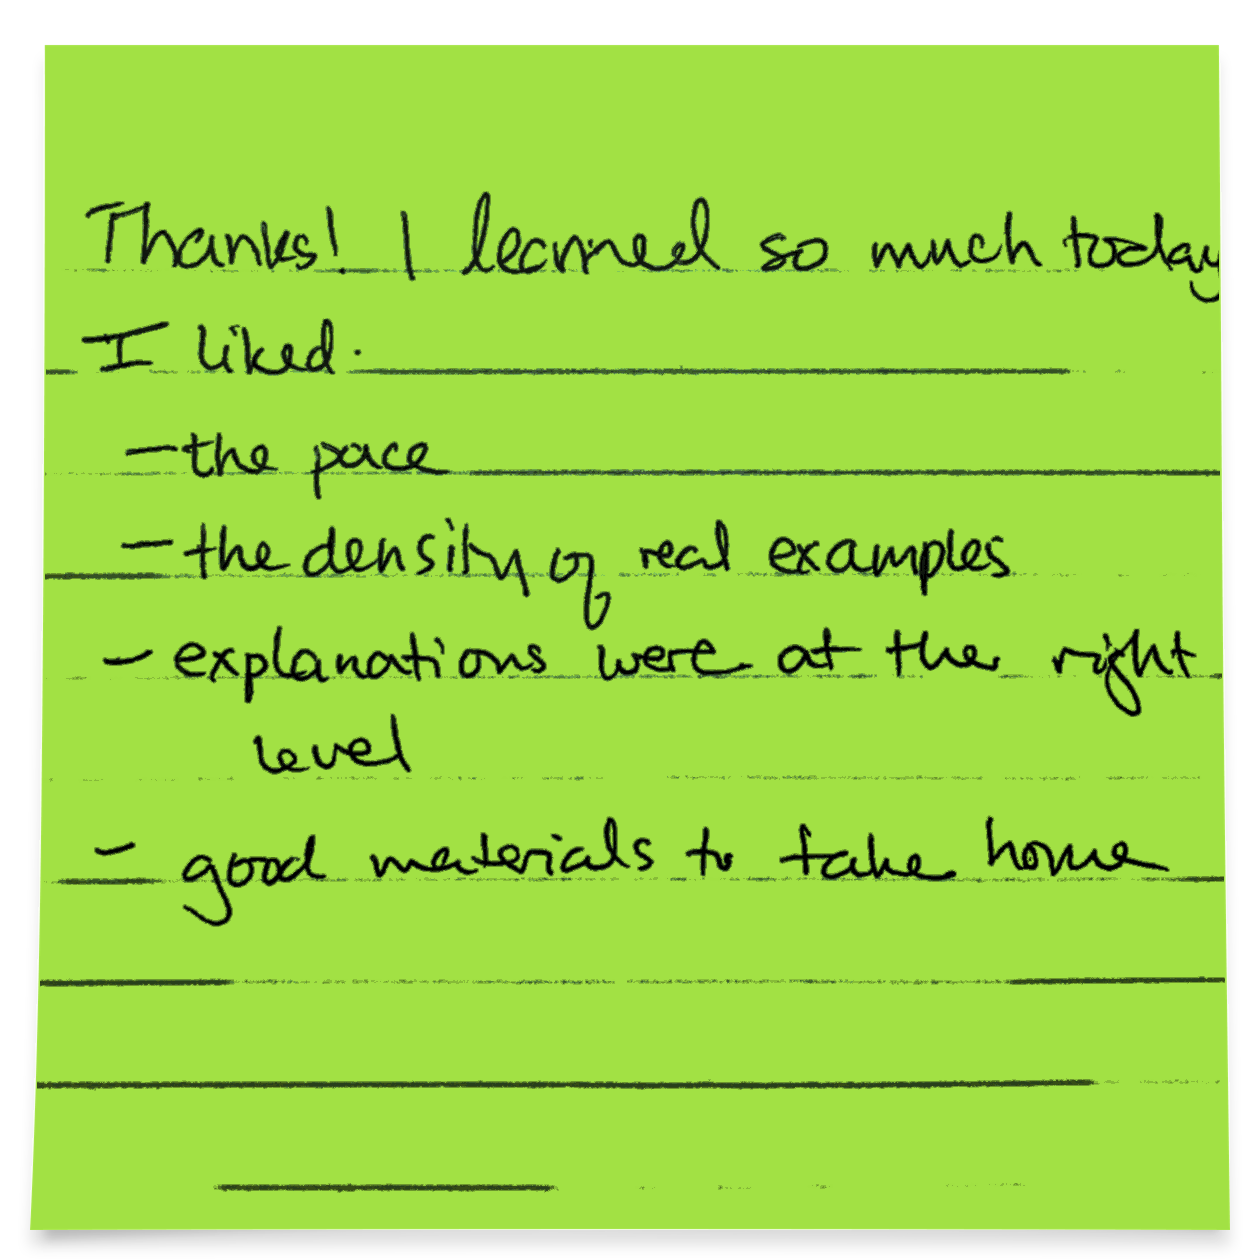 Thanks! I learned so much today
I liked.
- the pace
- the density of real examples
- explanations were at the right
level
- good materials to take home